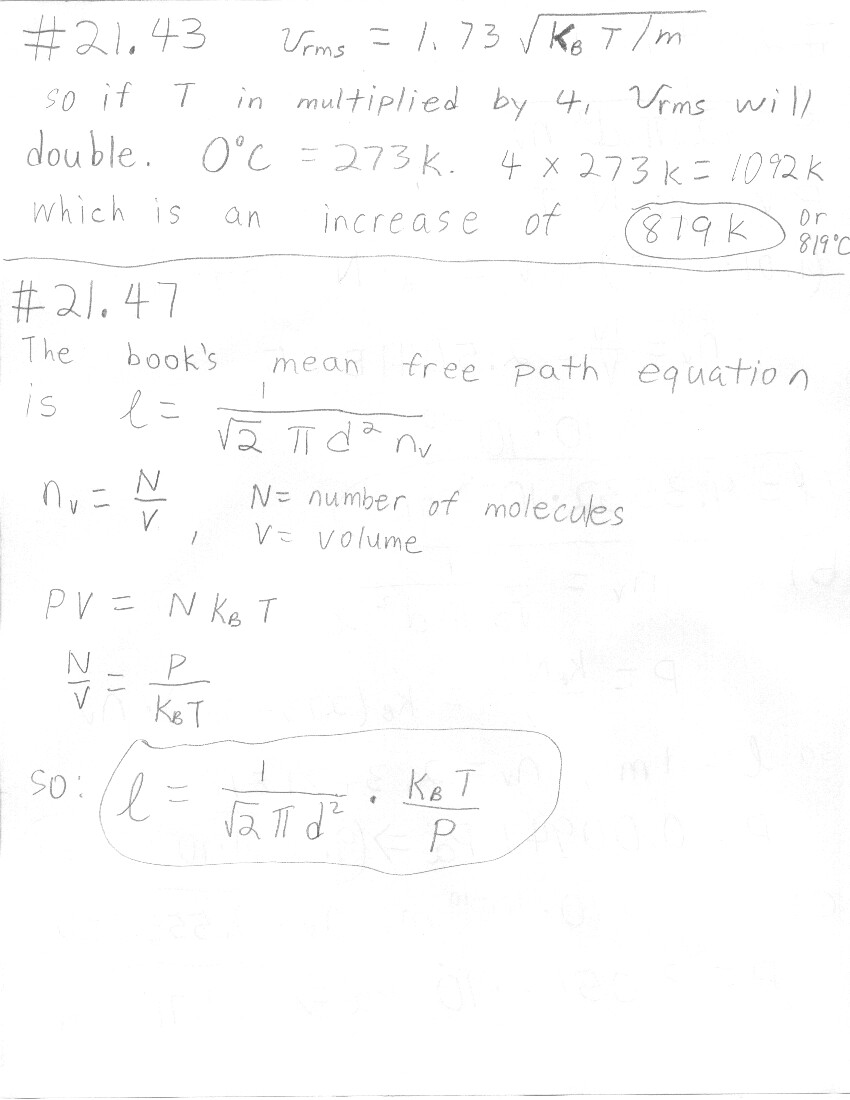 #21.43 Vrms = 1.73 √(KB T/m)
so if T in multiplied by 4, Vrms will
double. 0°C = 273k. 4 × 273k = 1092k
which is an increase of 819k or 819°C
#21.47
The book's mean free path equation
is ℓ = 1/(√2 π d² nv)
nv = N/V, N = number of molecules
V = volume
PV = N KB T
N/V = P/(KB T)
so: ℓ = 1/(√2 π d²) · KB T/P